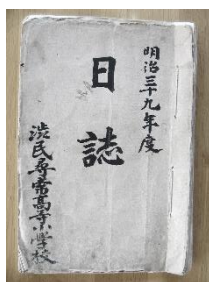 明治三十九年度
日誌
渋民尋常高等小学校